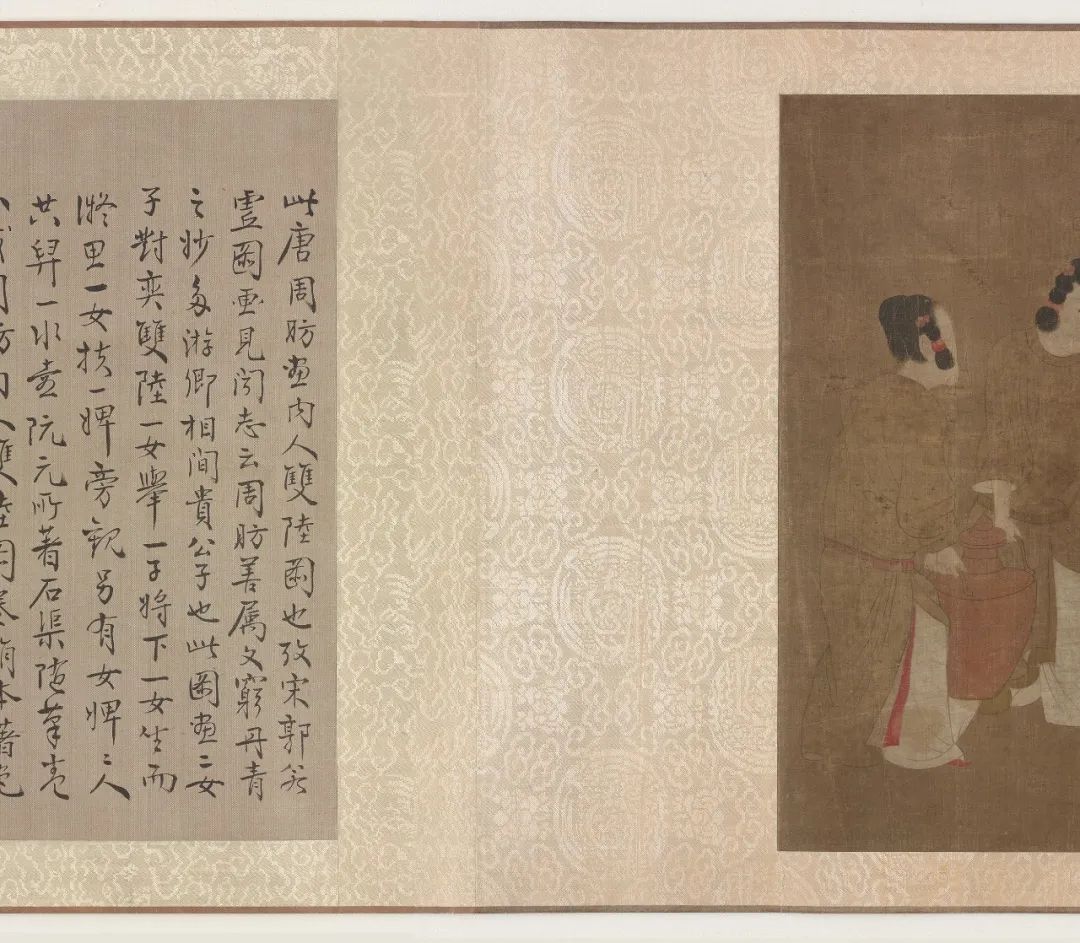 此唐周昉畫内人雙陸圖也攷宋郭若
虛圖畫見聞志云周昉善属文窮丹青
之妙多游卿相間貴公子也此圖畫二女
子對奕雙陸一女舉一子將下一女坐而
凝思一女扶一婢旁觀另有女婢二人
共舁一水壺阮元所著石渠隨筆卷
周昉内人雙陸圖卷絹本著色